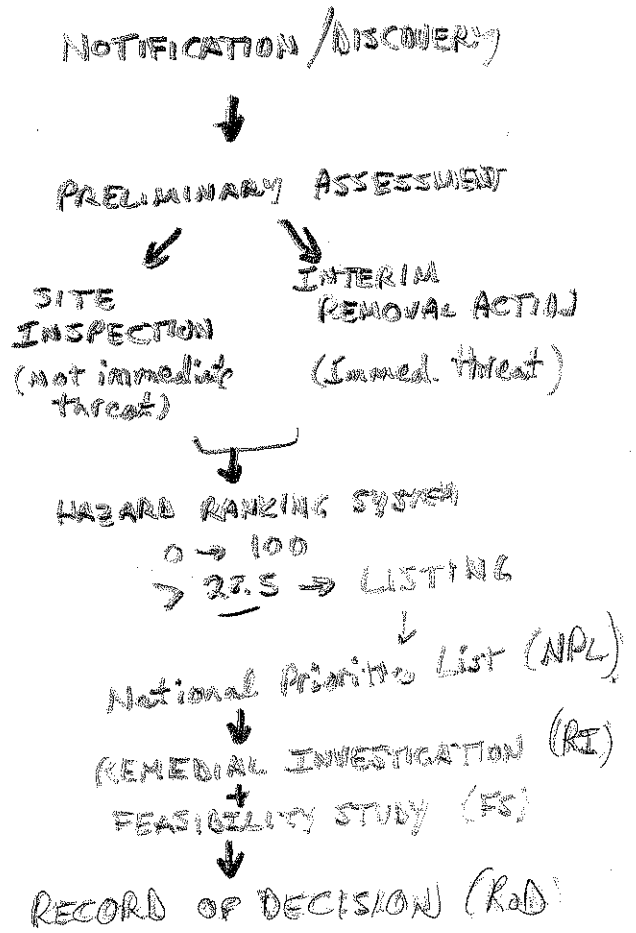 NOTIFICATION/DISCOVERY
PRELIMINARY ASSESSMENT
SITE
INSPECTION
(Not immediate
threat)
INTERIM
REMOVAL ACTION
(Immed. threat)
HAZARD RANKING SYSTEM
0 → 100
> 28.5 → LISTING
National Priorities List (NPL)
REMEDIAL INVESTIGATION (RI)
+
FEASIBILITY STUDY (FS)
RECORD OF DECISION (RoD